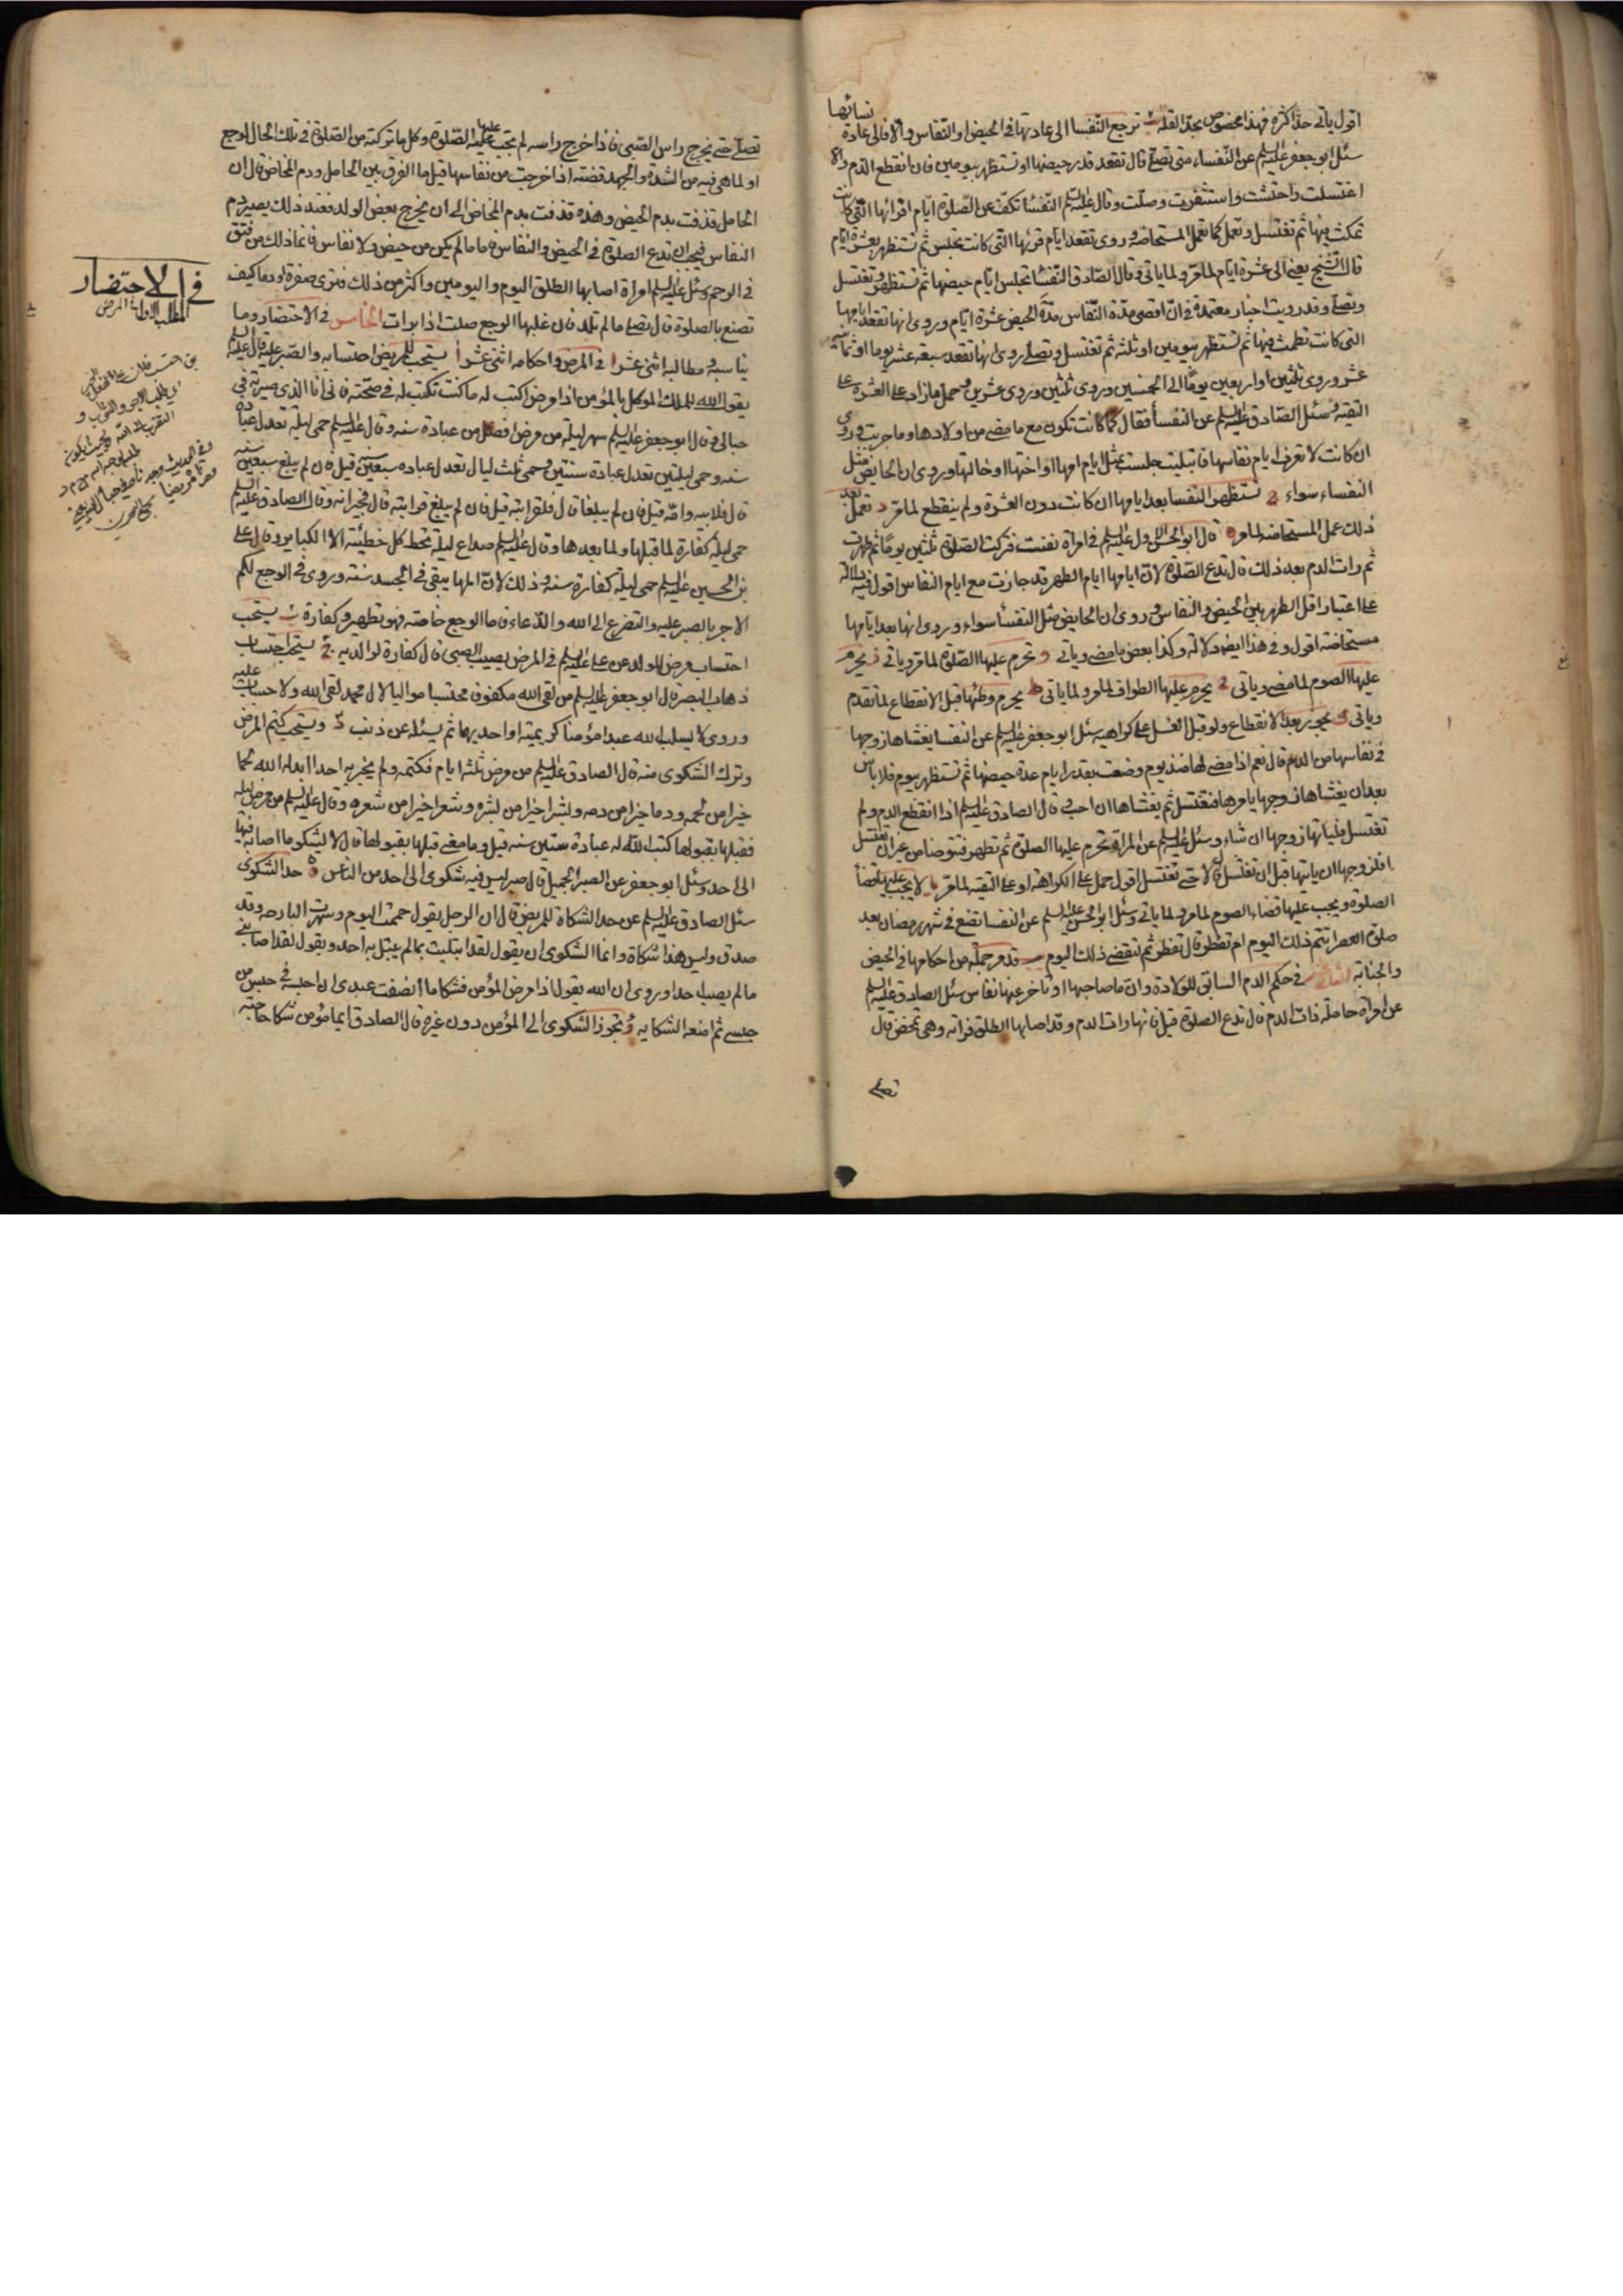 اقول ياتى حد اكثره فهذا مخصوص بحد القلة ترجع النفسا الى عادتها فى الحيض او النفاس والا فالى عادة نسائها
سئل ابو جعفر عليه السلم عن النفساء متى تصلى قال تقعد قدر حيضها وتستظهر بيومين فان انقطع الدم والا
اغتسلت واحتشت واستثفرت وصلت وقال عليه السلم النفسا تكف عن الصلوة ايام اقرائها التى كانت
تمكث فيها ثم تغتسل وتعمل كما تعمل المستحاضة وروى تقعد ايام قرئها التى كانت تجلس ثم تستظهر بعشرة ايام
قال الشيخ يعنى الى عشرة ايام لما مر ولما ياتى وقال الصادق النفسا تجلس ايام حيضها ثم تستظهر وتغتسل
وتصلى وقد رويت اخبار معتمدة فى ان اقصى مدة النفاس مدة الحيض عشرة ايام وروى انها تقعد ايامها
التى كانت تطمث فيها ثم تستظهر بيومين او ثلثة ثم تغتسل وتصلى وروى انها تقعد سبعة عشر يوما او ثمانية
عشر وروى ثلثين او اربعين يوما الى الخمسين وروى ثلثين وروى عشرين وحمل ما زاد على العشرة على
التقية وسئل الصادق عليه السلم عن النفسا فقال كما كانت تكون مع ما مضى من اولادها وما جربت وروى
ان كانت لا تعرف ايام نفاسها فابتليت جلست بمثل ايام امها او اختها او خالتها وروى ان الحايض مثل
النفساء سواء تستظهر النفسا بعد ايامها ان كانت دون العشرة ولم ينقطع لما مر د تعمل بعد
ذلك عمل المستحاضة لما مر قال ابو الحسن الاول عليه السلم فى امراة نفست فتركت الصلوة ثلثين يوما ثم طهرت
ثم رات الدم بعد ذلك قال تدع الصلوة لان ايامها ايام الطهر قد جازت مع ايام النفاس اقول فيه دلالة
على اعتبار اقل الطهر بين الحيض والنفاس وروى ان الحايض مثل النفسا سواء وروى انها بعد ايامها
مستحاضة اقول وفى هذا ايضا دلالة وكذا بعض ما مضى وياتى و تحرم عليها الصلوة لما مر وياتى ز يحرم
عليها الصوم لما مضى وياتى يحرم عليها الطواف لما مر ولما ياتى ط يحرم وطئها قبل الانقطاع لما تقدم
وياتى يجوز بعد الانقطاع ولو قبل الغسل على كراهية سئل ابو جعفر عليه السلم عن النفسا يغشاها زوجها
فى نفاسها من الدم قال نعم اذا مضى لها منذ يوم وضعت بقدر ايام عدة حيضها ثم تستظهر بيوم فلا باس
بعد ان يغشاها زوجها يامرها فتغتسل ثم يغشاها ان احب وقال الصادق عليه السلم اذا انقطع الدم ولم
تغتسل فلياتها زوجها ان شاء وسئل عليه السلم عن المراة تحرم عليها الصلوة ثم تطهر فتوضا من غير ان تغتسل
افلزوجها ان ياتيها قبل ان تغتسل قال لا حتى تغتسل اقول حمل على الكراهة او على التقية لما مر يا لا يجب عليها قضاء
الصلوة ويجب عليها قضاء الصوم لما مر ولما ياتى وسئل ابو الحسن عليه السلم عن النفسا تضع فى شهر رمضان بعد
صلوة العصر اتتم ذلك اليوم ام تفطر قال تفطر ثم لتقضى ذلك اليوم قد مر جملة من احكامها فى الحيض
والجنابة فى حكم الدم السابق للولادة وان ما صاحبها او تاخر عنها نفاس سئل الصادق عليه السلم
عن امراة حاملة رات الدم قال تدع الصلوة قيل فانها رات الدم وقد اصابها الطلق فراته وهى تمخض قال
تصلى
تصلى حتى يخرج راس الصبى فاذا خرج راسه لم تجب عليها الصلوة وكل ما تركته من الصلوة فى تلك الحال لوجع
او لما هى فيه من الشدة والجهد قضته اذا خرجت من نفاسها قيل ما الفرق بين الحامل ودم المخاض قال ان
الحامل قذفت بدم الحيض وهذه قذفت بدم المخاض الى ان يخرج بعض الولد فعند ذلك يصير دم
النفاس فيجب ان تدع الصلوة فى الحيض والنفاس فاما ما لم يكن من حيض ولا نفاس فانما ذلك من فتق
فى الرحم وسئل عليه السلم امراة اصابها الطلق اليوم واليومين واكثر من ذلك فترى صفرة او دما كيف
تصنع بالصلوة قال تصلى ما لم تلد فان غلبها الوجع صلت اذا برات الخامس فى الاحتضار وما
يناسبه ومطالبه اثنى عشر ا فى المرض واحكامه اثنى عشر ا يستحب للمريض احتسابه والصبر عليه قال عليه السلم
يقول الله للملك الموكل بالمؤمن اذا مرض اكتب له ما كنت تكتب له فى صحته فانى انا الذى صيرته فى
حبالى وقال ابو جعفر عليه السلم سهر ليلة من مرض افضل من عبادة سنة وقال عليه السلم حمى ليلة تعدل عبادة
سنة وحمى ليلتين تعدل عبادة سنتين وحمى ثلث ليال تعدل عبادة سبعين سنة قيل فان لم يبلغ سبعين سنة
قال فلابيه وامه قيل فان لم يبلغا قال فلقرابته قيل فان لم يبلغ قرابته قال فجيرانه وقال الصادق عليه السلم
حمى ليلة كفارة لما قبلها ولما بعدها وقال عليه السلم صداع ليلة تحط كل خطيئة الا الكباير وقال على
بن الحسين عليه السلم حمى ليلة كفارة سنة وذلك لان المها يبقى فى الجسد سنة وروى فى الوجع لكم
الاجر بالصبر عليه والتضرع الى الله والدعاء فاما الوجع خاصة فهو تطهر وكفارة ب يستحب
احتساب مرض الولد عن على عليه السلم فى المرض يصيب الصبى قال كفارة لوالديه ج يستحب احتساب
ذهاب البصر قال ابو جعفر عليه السلم من لقى الله مكفوفا محتسبا مواليا لال محمد لقى الله ولا حساب عليه
وروى لا يسلب الله عبدا مؤمنا كريمتيه او احديهما ثم يسئله عن ذنب د ويستحب كتم المرض
وترك الشكوى منه قال الصادق عليه السلم من مرض ثلثة ايام فكتمه ولم يخبر به احدا ابدله الله لحما
خيرا من لحمه ودما خيرا من دمه وبشرا خيرا من بشره وشعرا خيرا من شعره وقال عليه السلم من مرض ليلة
فقبلها بقبولها كتب الله له عبادة ستين سنة قيل وما معنى قبلها بقبولها قال لا يشكو ما اصابه فيها
الى احد وسئل ابو جعفر عن الصبر الجميل قال صبر ليس فيه شكوى الى احد من الناس ه حد الشكوى
سئل الصادق عليه السلم عن حد الشكاة للمريض قال ان الرجل يقول حممت اليوم وسهرت البارحة وقد
صدق وليس هذا شكاة وانما الشكوى ان يقول لقد ابتليت بما لم يبتل به احد ويقول لقد اصابنى
ما لم يصيب احدا وروى ان الله يقول اذا مرض المؤمن فشكا ما انصفت عبدى ان احبسه فى حبس من
حبسى ثم امنعه الشكاية و تجوز الشكوى الى المؤمن دون غيره قال الصادق ايما مؤمن شكا حاجته
فى الاحتضار
المطلب الاول فى المرض
اى طلب الاجر والثواب و